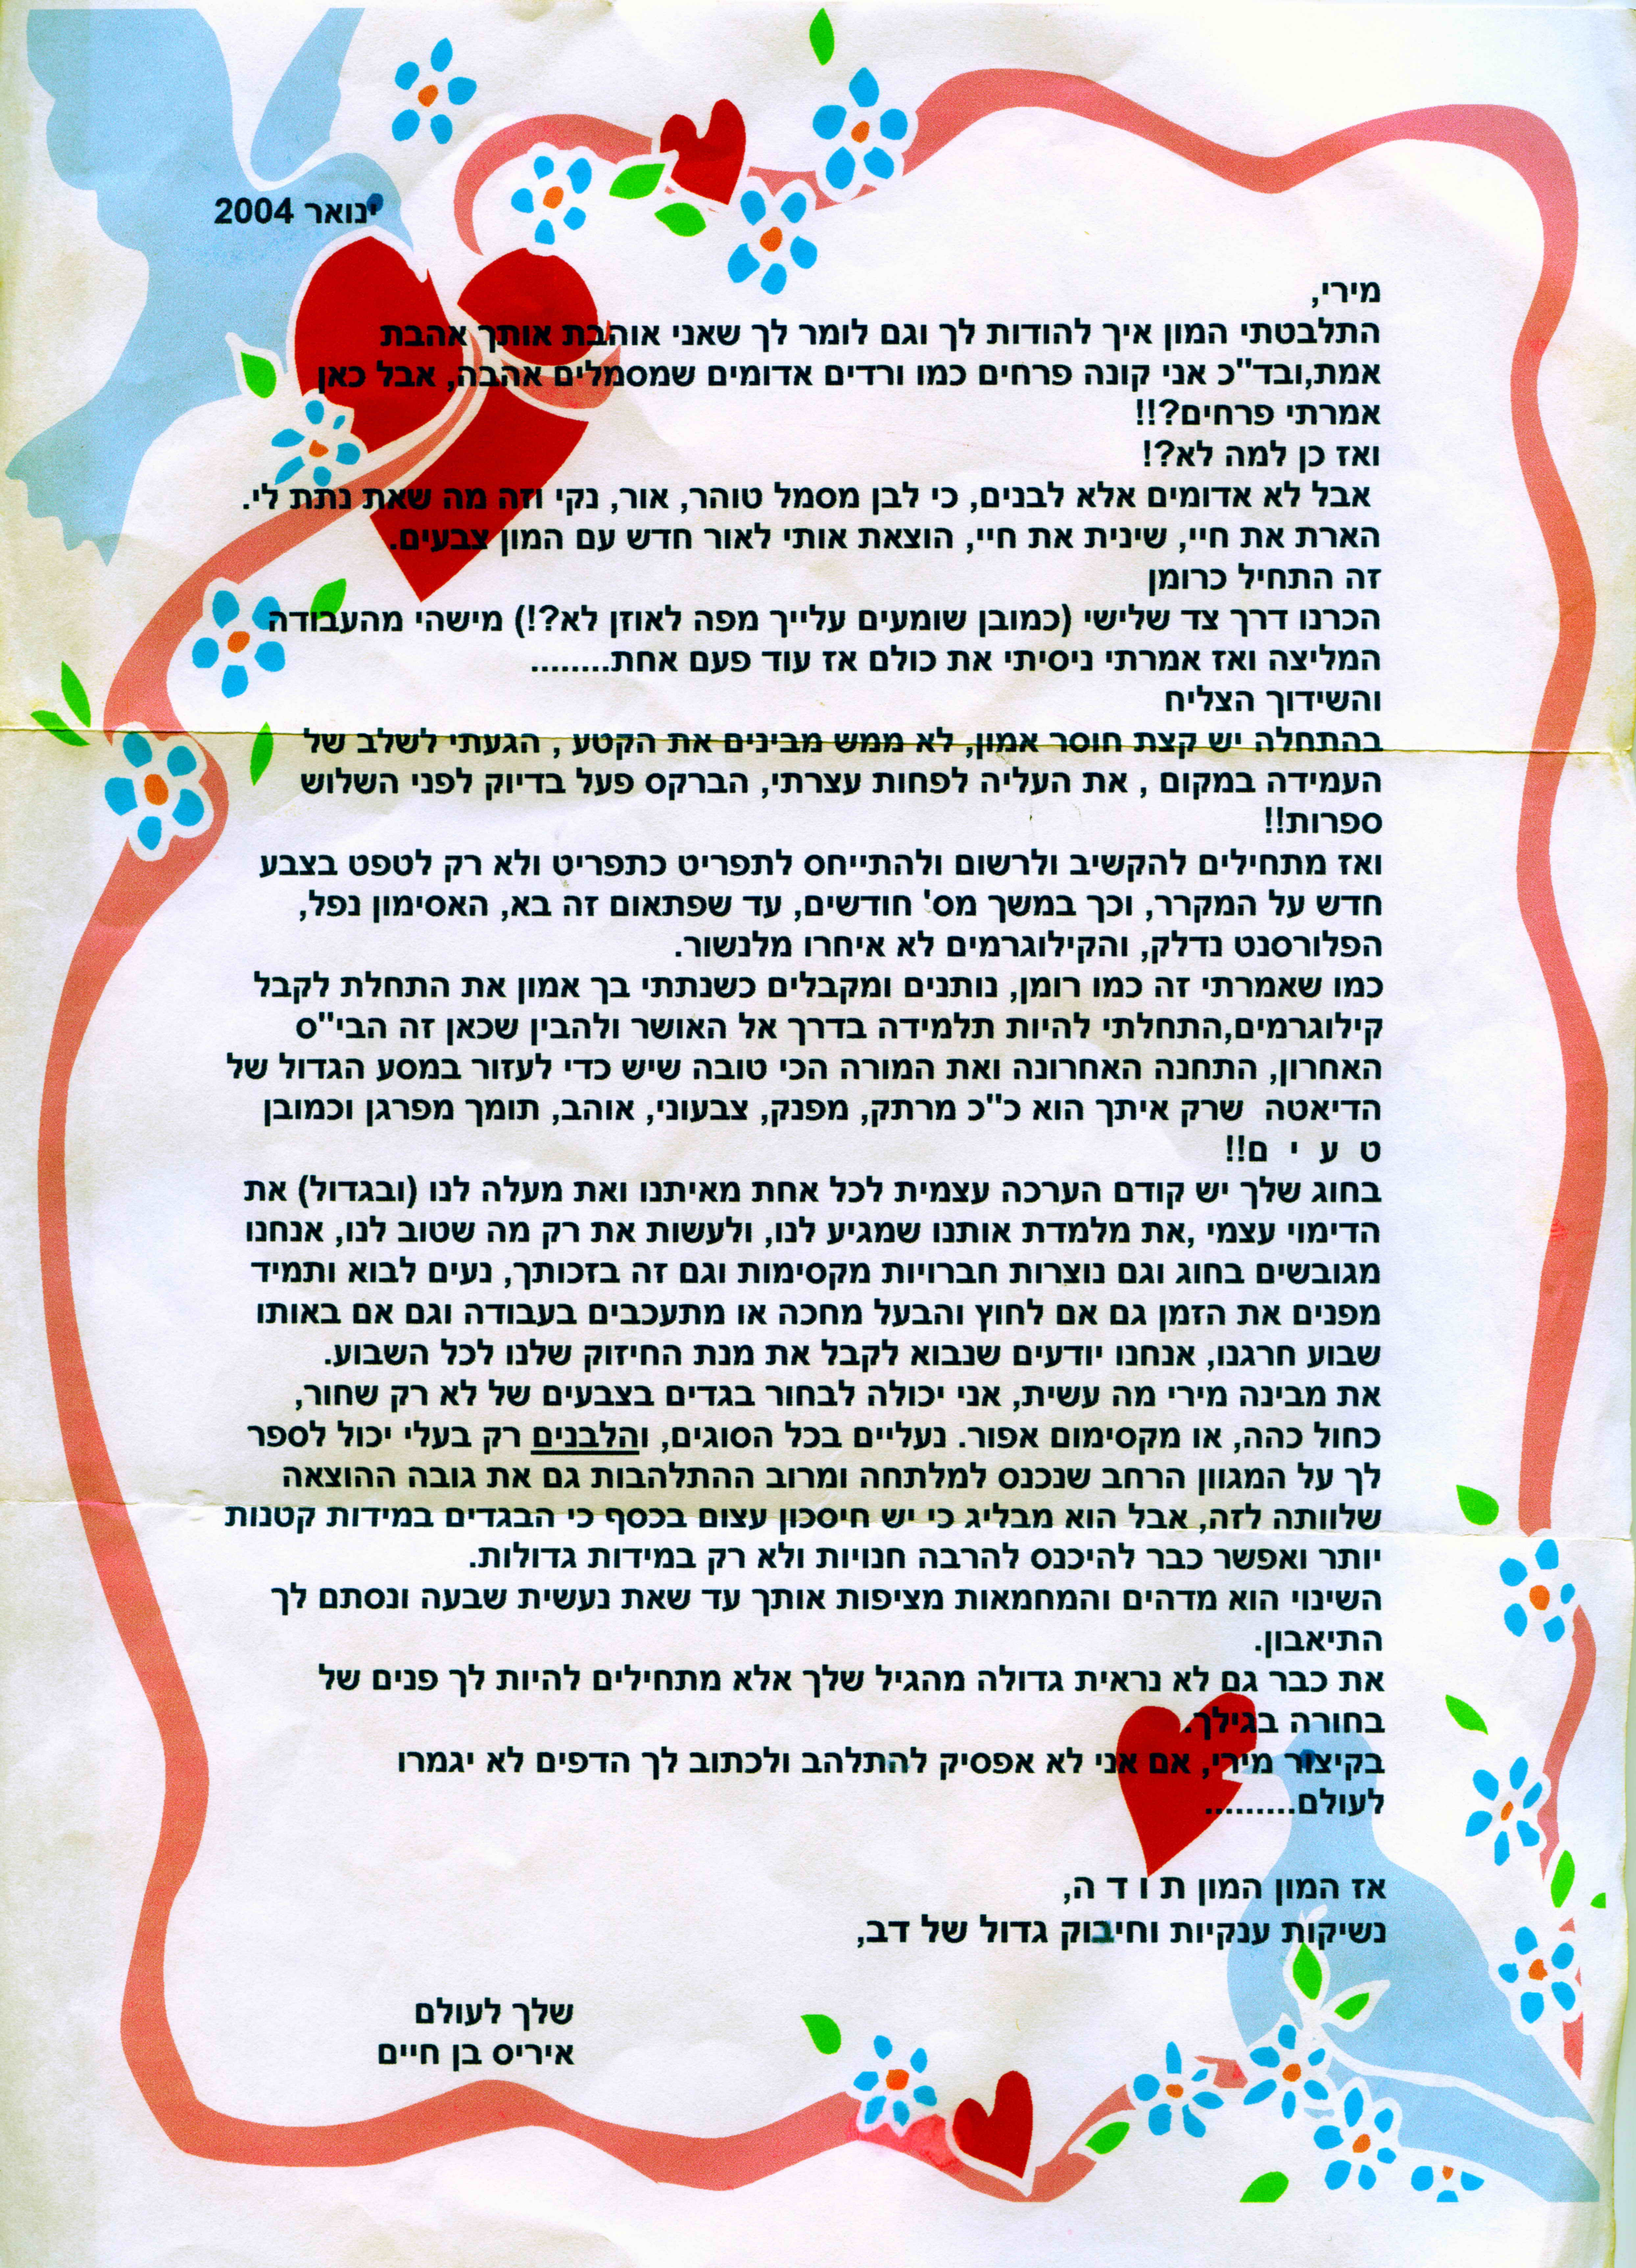 ינואר 2004
מירי,
התלבטתי המון איך להודות לך וגם לומר לך שאני אוהבת אותך אהבת
אמת,ובד"כ אני קונה פרחים כמו ורדים אדומים שמסמלים אהבה, אבל כאן
אמרתי פרחים?!!
ואז כן למה לא?!
אבל לא אדומים אלא לבנים, כי לבן מסמל טוהר, אור, נקי וזה מה שאת נתת לי.
הארת את חיי, שינית את חיי, הוצאת אותי לאור חדש עם המון צבעים.
זה התחיל כרומן
הכרנו דרך צד שלישי (כמובן שומעים עלייך מפה לאוזן לא?!) מישהי מהעבודה
המליצה ואז אמרתי ניסיתי את כולם אז עוד פעם אחת........
והשידוך הצליח
בהתחלה יש קצת חוסר אמון, לא ממש מבינים את הקטע , הגעתי לשלב של
העמידה במקום , את העליה לפחות עצרתי, הברקס פעל בדיוק לפני השלוש
ספרות!!
ואז מתחילים להקשיב ולרשום ולהתייחס לתפריט כתפריט ולא רק לטפט בצבע
חדש על המקרר, וכך במשך מס' חודשים, עד שפתאום זה בא, האסימון נפל,
הפלורסנט נדלק, והקילוגרמים לא איחרו מלנשור.
כמו שאמרתי זה כמו רומן, נותנים ומקבלים כשנתתי בך אמון את התחלת לקבל
קילוגרמים,התחלתי להיות תלמידה בדרך אל האושר ולהבין שכאן זה הבי"ס
האחרון, התחנה האחרונה ואת המורה הכי טובה שיש כדי לעזור במסע הגדול של
הדיאטה  שרק איתך הוא כ"כ מרתק, מפנק, צבעוני, אוהב, תומך מפרגן וכמובן
ט ע י ם!!
בחוג שלך יש קודם הערכה עצמית לכל אחת מאיתנו ואת מעלה לנו (ובגדול) את
הדימוי עצמי ,את מלמדת אותנו שמגיע לנו, ולעשות את רק מה שטוב לנו, אנחנו
מגובשים בחוג וגם נוצרות חברויות מקסימות וגם זה בזכותך, נעים לבוא ותמיד
מפנים את הזמן גם אם לחוץ והבעל מחכה או מתעכבים בעבודה וגם אם באותו
שבוע חרגנו, אנחנו יודעים שנבוא לקבל את מנת החיזוק שלנו לכל השבוע.
את מבינה מירי מה עשית, אני יכולה לבחור בגדים בצבעים של לא רק שחור,
כחול כהה, או מקסימום אפור. נעליים בכל הסוגים, והלבנים רק בעלי יכול לספר
לך על המגוון הרחב שנכנס למלתחה ומרוב ההתלהבות גם את גובה ההוצאה
שלוותה לזה, אבל הוא מבליג כי יש חיסכון עצום בכסף כי הבגדים במידות קטנות
יותר ואפשר כבר להיכנס להרבה חנויות ולא רק במידות גדולות.
השינוי הוא מדהים והמחמאות מציפות אותך עד שאת נעשית שבעה ונסתם לך
התיאבון.
את כבר גם לא נראית גדולה מהגיל שלך אלא מתחילים להיות לך פנים של
בחורה בגילך.
בקיצור מירי, אם אני לא אפסיק להתלהב ולכתוב לך הדפים לא יגמרו
לעולם.........
אז המון המון ת ו ד ה,
נשיקות ענקיות וחיבוק גדול של דב,
שלך לעולם
איריס בן חיים